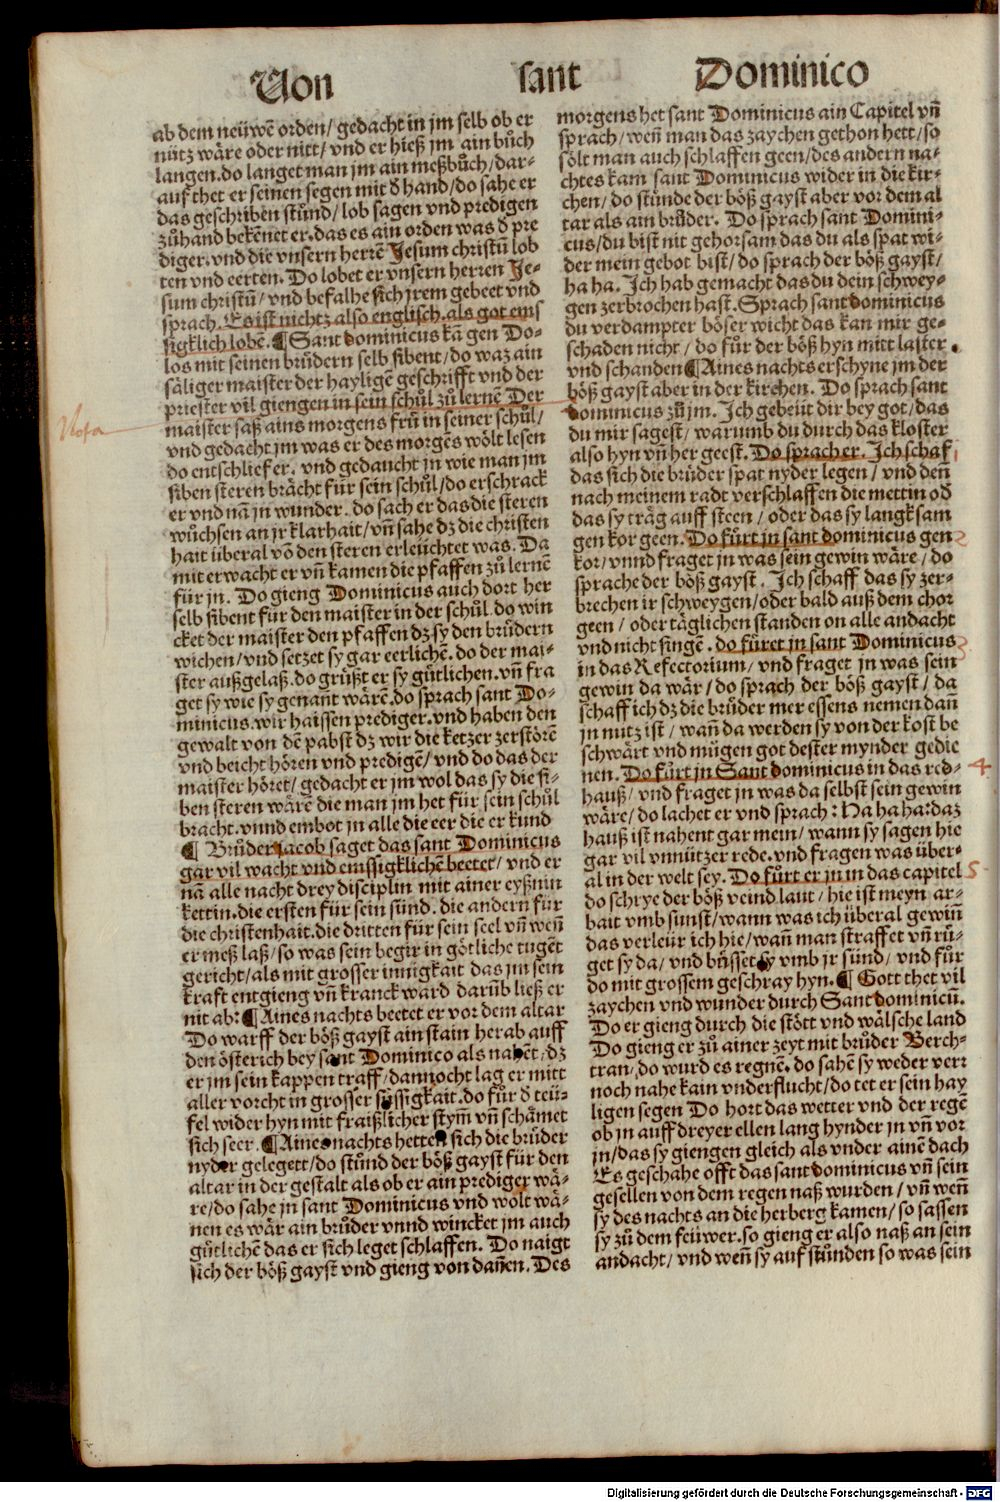 Von sant Dominico
ab dem neüwẽ orden/ gedacht in jm selb ob er
nütz wäre oder nitt/ vnd er hieß jm ain bůch
langen. do langet man jm ain meßbůch/ dar-
auf thet er seinen segen mit d̕ hand/ do sahe er
das geschriben stůnd/ lob sagen vnd predigen
zůhand bekẽnet er. das es ain orden was d̕ pre
diger. vnd die vnsern herrẽ Jesum christũ lob
ten vnd eerten. Do lobet er vnsern herren Je-
sum christũ/ vnd befalhe sich jrem gebeet vnd
sprach. Es ist nichtz also englisch. als got ems
sigklich lobẽ. ¶ Sant dominicus kã gen Do-
los mit seinen brůdern selb sibent/ do waz ain
säliger maister der hayligẽ geschrifft vnd der
priester vil giengen in sein schůl zů lernẽ Der
Nota
maister saß ains morgens frü in seiner schůl/
vnd gedacht jm was er des morgẽs wölt lesen
do entschlief er. vnd gedaucht jn wie man jm
siben steren brächt für sein schůl/ do erschrack
er vnd nã jn wunder. do sach er das die steren
wůchsen an jr klarhait/ vñ sahe dz die christen
hait überal võ den steren erleüchtet was. Da
mit erwacht er vñ kamen die pfaffen zů lernẽ
für jn. Do gieng Dominicus auch dort her
selb sibent für den maister in der schůl. do win
cket der maister den pfaffen dz sy den brůdern
wichen/ vnd setzet sy gar eerlichẽ. do der mai-
ster außgelaß. do grüßt er sy gütlichen. vñ fra
get sy wie sy genant wärẽ. do sprach sant Do-
minicus. wir haissen prediger. vnd haben den
gewalt von dẽ pabst dz wir die ketzer zerstörẽ
vnd beicht hören vnd predigẽ/ vnd do das der
maister höret/ gedacht er jm wol das sy die si-
ben steren wärẽ die man jm het für sein schůl
bracht. vnnd embot jn alle die eer die er kund
¶ Brůder jacob saget das sant Dominicus
gar vil wacht vnd emssigklichẽ beetet/ vnd er
nã alle nacht drey disciplin mit ainer eyßnin
kettin. die ersten für sein sünd. die andern für
die christenhait. die dritten für sein seel vñ weñ
er meß laß/ so was sein begir in götliche tugẽt
gericht/ als mit grosser innigkait das jm sein
kraft entgieng vñ kranck ward darũb ließ er
nit ab: ¶ Aines nachts beetet er vor dem altar
Do warff der böß gayst ain stain herab auff
den österich bey sant Dominico als nahẽt/ dz
er jm sein kappen traff/ dannocht lag er mitt
aller vorcht in grosser süssigkait. do fůr d̕ teü-
fel wider hyn mit fraißlicher stym̃ vñ schämet
sich seer. ¶ Aines nachts hetten sich die brüder
nyder gelegett/ do stůnd der böß gayst für den
altar in der gestalt als ob er ain prediger wä-
re/ do sahe jn sant Dominicus vnd wolt wä-
nen es wär ain brůder vnnd wincket jm auch
gůtlichẽ das er sich leget schlaffen. Do naigt
sich der böß gayst vnd gieng von dañen. Des
morgens het sant Dominicus ain Capitel vñ
sprach/ weñ man das zaychen gethon hett/ so
sölt man auch schlaffen geen/ des andern na-
chtes kam sant Dominicus wider in die kir-
chen/ do stůnde der böß gayst aber vor dem al
tar als ain brůder. Do sprach sant Domini-
cus/ du bist nit gehorsam das du als spat wi-
der mein gebot bist/ do sprach der böß gayst/
ha ha. Ich hab gemacht das du dein schwey-
gen zerbrochen hast. Sprach sant dominicus
du verdampter böser wicht das kan mir ge-
schaden nicht/ do fůr der böß hyn mitt laster
vnd schanden ¶ Aines nachts erschyne jm der
böß gayst aber in der kirchen. Do sprach sant
dominicus zů jm. Ich gebeüt dir bey got/ das
du mir sagest/ warumb du durch das kloster
also hyn vñ her geest. Do sprach er. Ich schaf 1
das sich die brüder spat nyder legen/ vnd deñ
nach meinem radt verschlaffen die mettin od̕
das sy träg auff steen/ oder das sy langksam
gen kor geen. Do fůrt jn sant dominicus gen 2
kor/ vnnd fraget jn was sein gewin wäre/ do
sprache der böß gayst. Ich schaff das sy zer-
brechen ir schweygen/ oder bald auß dem chor
geen/ oder täglichen standen on alle andacht
vnd nicht singẽ. do fůret jn sant Dominicus 3
in das Refectorium/ vnd fraget jn was sein
gewin da wär/ do sprach der böß gayst/ da
schaff ich dz die brůder mer essens nemen dañ
jn nütz ist/ wañ da werden sy von der kost be
schwärt vnd mügen got dester mynder gedie
nen. Do fůrt jn Sant dominicus in das red- 4
hauß/ vnd fraget jn was da selbst sein gewin
wäre/ do lachet er vnd sprach: Ha ha ha: daz
hauß ist nahent gar mein/ wann sy sagen hie
gar vil vnnützer rede. vnd fragen was über-
al in der welt sey. Do fůrt er jn in das capitel 5
do schrye der böß veind laut/ hie ist meyn ar-
bait vmb sunst/ wann was ich überal gewiñ
das verleür ich hie/ wañ man straffet vñ rů-
get sy da/ vnd büsset sy vmb jr sünd/ vnd fůr
do mit grossem geschray hyn. ¶ Gott thet vil
zaychen vnd wunder durch Sant dominicũ.
Do er gieng durch die stött vnd wälsche land
Do gieng er zů ainer zeyt mit brůder Berch-
tran/ do wurd es regnẽ. do sahẽ sy weder verr
noch nahe kain vnderflucht/ do tet er sein hay
ligen segen Do hort das wetter vnd der regẽ
ob jn auff dreyer ellen lang hynder jn vñ vor
jn/ das sy giengen gleich als vnder ainẽ dach
Es geschahe offt das sant dominicus vñ sein
gesellen von dem regen naß wurden/ vñ weñ
sy des nachts an die herberg kamen/ so sassen
sy zů dem feüwer. so gieng er also naß an sein
andacht/ vnd weñ sy auf stůnden so was sein
Digitalisierung gefördert durch die Deutsche Forschungsgemeinschaft - DFG